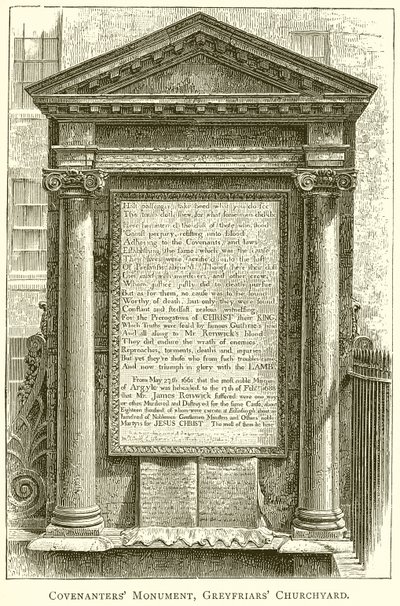 Halt passenger, take heed what you do see
This tomb doth shew, for what some men did die
Here lies interr'd the dust of those who stood
'Gainst perjury, resisting unto blood
Adhering to the Covenants, and laws
Establishing the same, which was the cause
Their lives were sacrific'd unto the lust
Of Prelatist's abjur'd. Though here their dust
Lies mixt with murderers, and other crew,
Whom justice justly did to death pursue
But as for them, no cause was to be found
Worthy of death, but only they were found
Constant and stedfast, zealous, witnessing
For the Prerogatives of CHRIST their KING
Which Truths were seal'd by famous Guthrie's head
And all along to Mr Renwick's blood
They did endure the wrath of enemies
Reproaches, torments, deaths and injuries
But yet they're those who from such troubles
And now triumph in glory with the LAMB
From May 27th 1661 that the most noble Marquis
of Argyle was beheaded, to the 17th of
that Mr. James Renwick suffered were one way
or other Murdered and Destroyed for the same Cause, about
Eighteen thousand, of whom were execute at Edinburgh about
hundred of Noblemen Gentlemen Ministers and Others noble
Martyrs for JESUS CHRIST. The most of them lie here
COVENANTERS' MONUMENT, GREYFRIARS' CHURCHYARD.